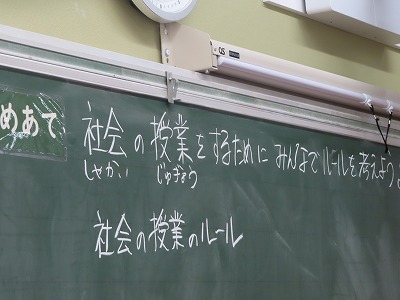 めあて
社会の授業をするために みんなでルールを考えよう
しゃかい じゅぎょう
社会の授業のルール